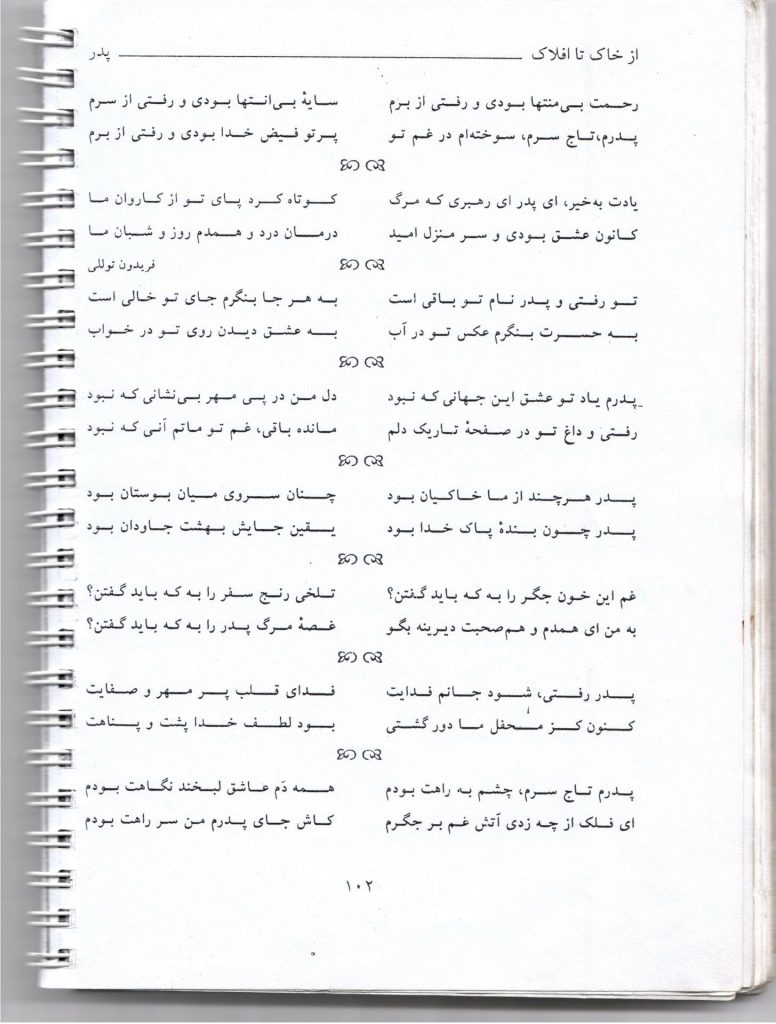 از خاک تا افلاک پدر
رحمت بی‌منتها بودی و رفتی از برم سایهٔ بی‌انتها بودی و رفتی از سرم
پدرم،تاج سرم، سوخته‌ام در غم تو پرتو فیض خدا بودی و رفتی از برم
یادت به‌خیر، ای پدر ای رهبری که مرگ کوتاه کرد پای تو از کاروان ما
کانون عشق بودی و سر منزل امید درمان درد و همدم روز و شبان ما
فریدون توللی
تو رفتی و پدر نام تو باقی است به هر جا بنگرم جای تو خالی است
به حسرت بنگرم عکس تو در آب به عشق دیدن روی تو در خواب
پدرم یاد تو عشق این جهانی که نبود دل من در پی مهر بی‌نشانی که نبود
رفتی و داغ تو در صفحهٔ تاریک دلم مانده باقی، غم تو ماتم آنی که نبود
پدر هرچند از ما خاکیان بود چنان سروی میان بوستان بود
پدر چون بندهٔ پاک خدا بود یقین جایش بهشت جاودان بود
غم این خون جگر را به که باید گفتن؟ تلخی رنج سفر را به که باید گفتن؟
به من ای همدم و هم‌صحبت دیرینه بگو غصهٔ مرگ پدر را به که باید گفتن؟
پدر رفتی، شود جانم فدایت فدای قلب پر مهر و صفایت
کنون کز محفل ما دور گشتی بود لطف خدا پشت و پناهت
پدرم تاج سرم، چشم به راهت بودم همه دَم عاشق لبخند نگاهت بودم
ای فلک از چه زدی آتش غم بر جگرم کاش جای پدرم من سر راهت بودم
۱۰۲